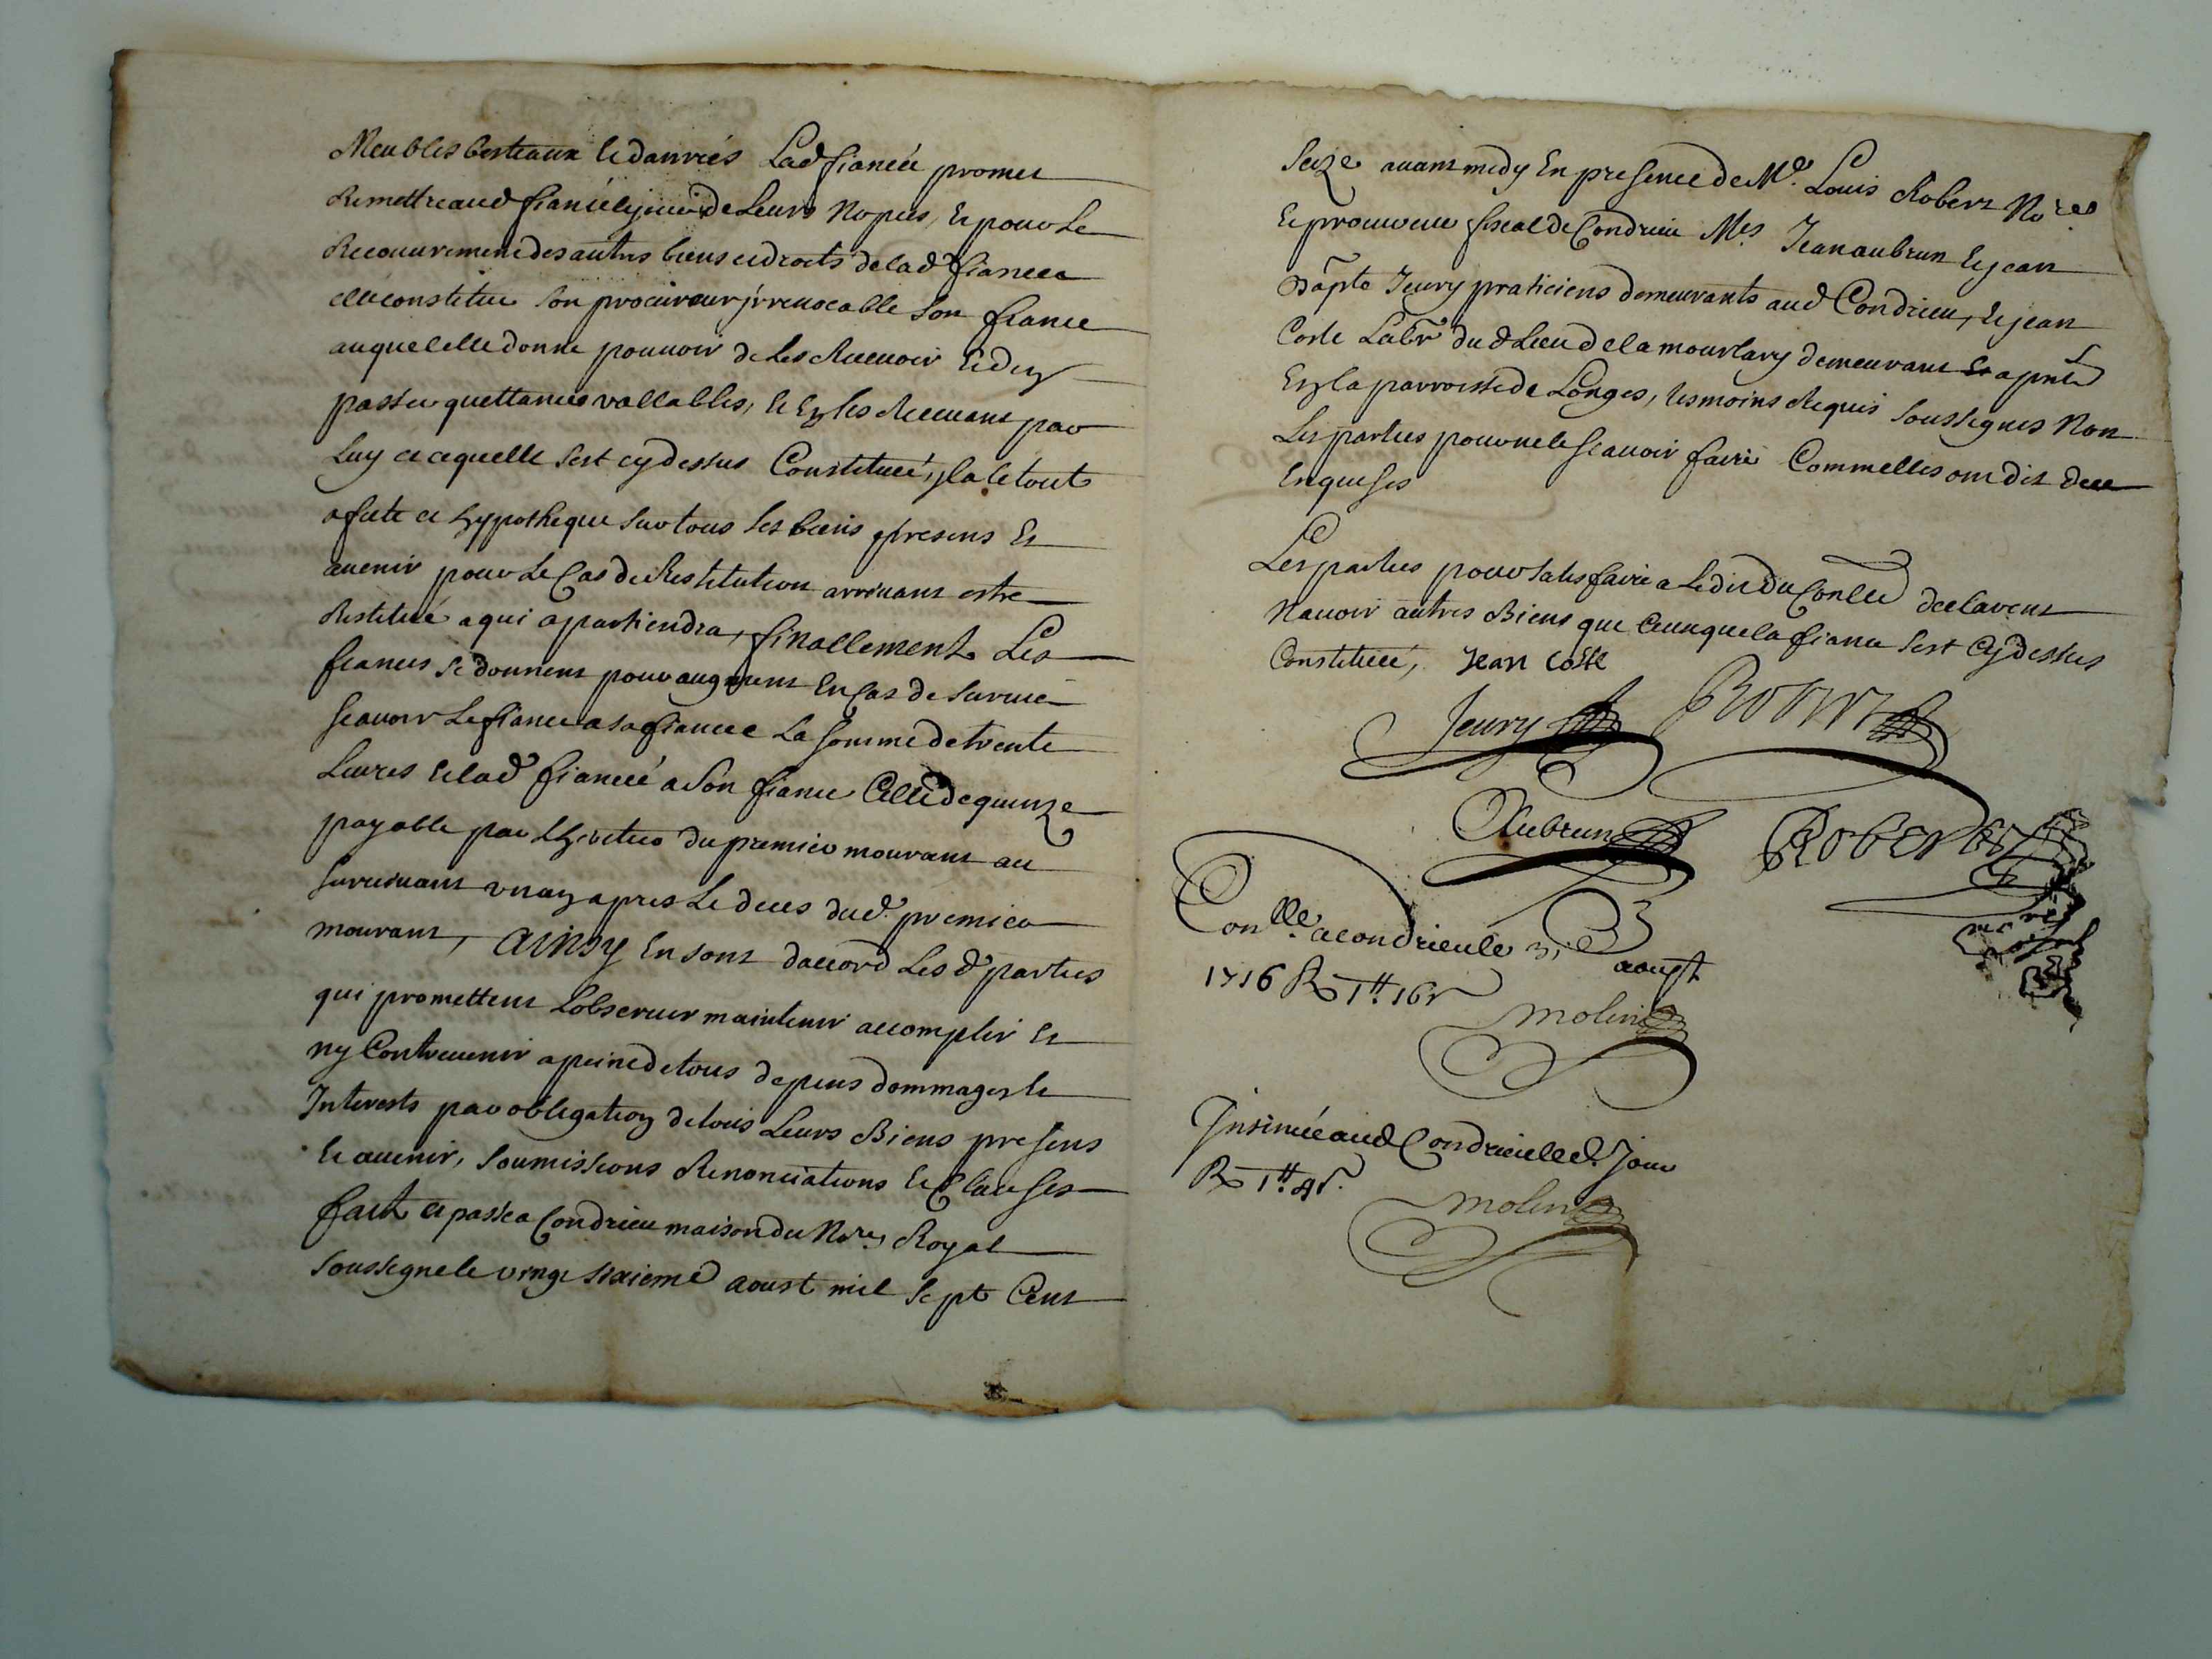 Meubles bestiaux et danrrés Lad fiancée promet
Remettre aud fiancé le jour de Leurs Nopces, et pour Le
Recouurement des autres biens et droits delad fiancee
elle constitue son procureur jrreuocable Son fiance
auquel elle donne pouuoir de les Receuoir et den
passer quettances vallables, et En les Receuant par
Luy ce cequelle sest cy dessus Constitueé, jl a le tout
afecté et hypotheque sur tous ses biens presens Et
auenir pour Le Cas de Restitution arriuant estre
Restitué a qui apartiendra, finallement Les
fiances se donnent pour augment En Cas de suruie
scauoir Le fiance a sa fiancee La somme de trente
Liures et lad fianceé a son fiance Celle de quinze
payable par Les heritiers du premier mourant au
suruiuant vn an apres Le deces dud. premier
mourant, ainsy En sont daccord Les d parties
qui promettent Lobseruer maintenir accomplir Et
ny Contreuenir a peine de tous depens dommages et
Interests par obligation de tous Leurs Biens presens
et auenir, soumissions Renonciations et Clauses
fait et passé a Condrieu maison du No.re Royal
soussigne le vingt sixieme aoust mil sept Cent
seize auant midy En presence de Me. Louis Robert No.re
et procureur fiscal de Condrieu Mes Jean aubrun et jean
Bapte Jeury praticiens demeurants aud Condrieu, et jean
Coste Labr dud Lieu de la mourlary demeurant a pnt
En la parroisse de Longes, tesmoins Requis soussignes Non
Les parties pour ne le scauoir faire Comme elles ont dit dece
Enquises
Les parties pour satisfaire a Ledit du Conlle declarent
Nauoir autres Biens que Ceux que la fiance sest Cy dessus
Constitueé, Jean Coste
Jeury Robert
Aubrun Robert
Conlle. a condrieu le 31 aoust
1716 R 1tt 16s
molin
Insinuée aud Condrieu led. jour
R 1tt 4s.
molin